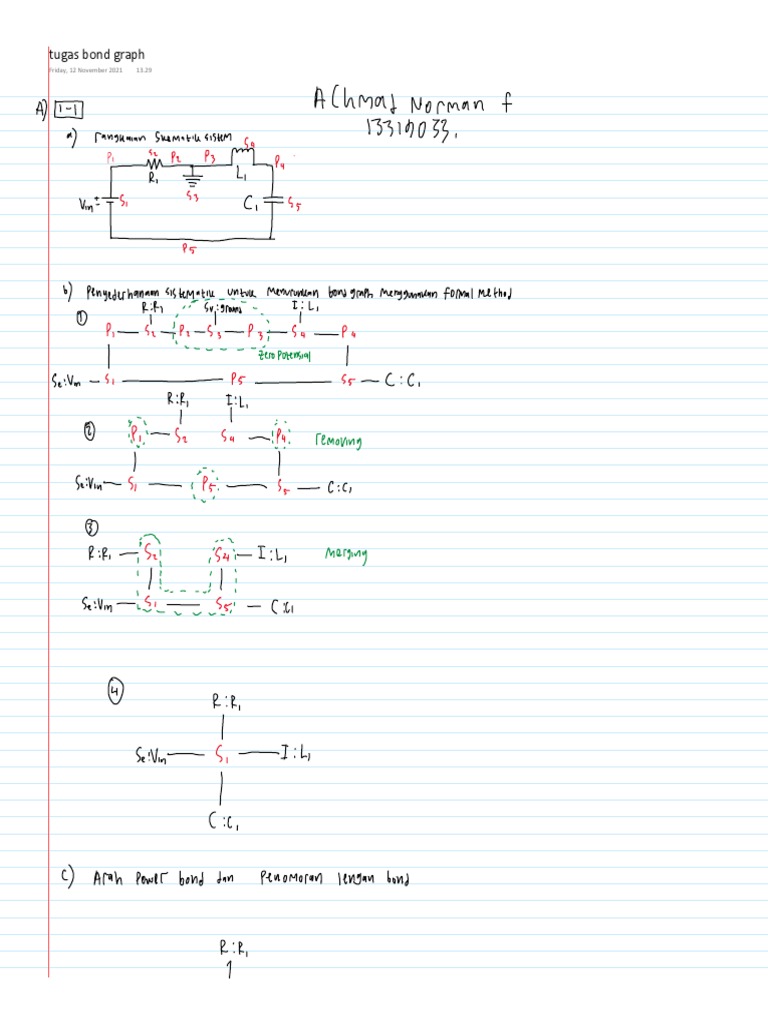 tugas bond graph
Friday, 12 November 2021 13.29
Achmad Norman f
13319033.
A) 1-1
a) rangkaian Skematik sistem
P1 S2 P2 P3 S4 P4
R1 L1
Vin + - S1 S3 C1 S5
P5
b) Penyederhanaan sistematik untuk menurunkan bond graph menggunakan formal method
R:R1 Se:ground I:L1
1 P1 S2 P2 S3 P3 S4 P4
Zero Potensial
Se:Vin S1 P5 S5 C:C1
R:R1 I:L1
2 P1 S2 S4 P4 removing
Se:Vin S1 P5 S5 C:C1
3
R:R1 S2 S4 I:L1 Merging
Se:Vin S1 S5 C:C1
4
R:R1
Se:Vin S1 I:L1
C:C1
C) Arah Power bond dan Penomoran lengan bond
R:R1